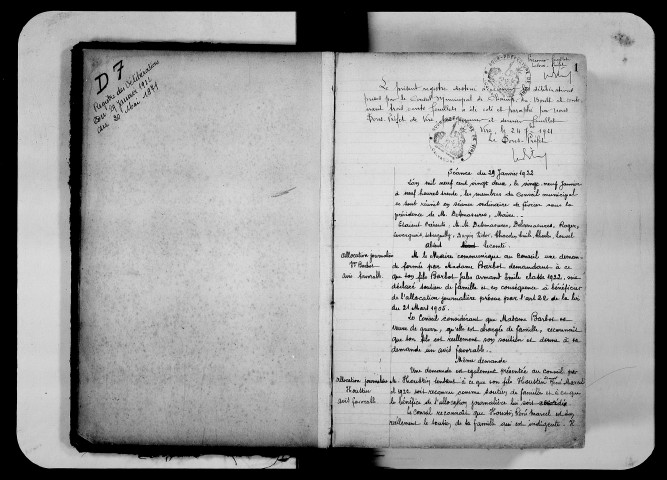 D 7
Registre des Délibérations
du 29 Janvier 1922
au 30 Mai 1931
1
Le présent registre destiné à
prises par le Conseil Municipal de
trois cents feuillets a été coté et paraphé par nous
Sous-Préfet de Vire, premier et dernier feuillet
Vire, le 24 1921
Le Sous-Préfet
Séance du 29 Janvier 1922
L'an mil neuf cent vingt deux, le vingt neuf Janvier
à neuf heures trente, les membres du Conseil municipal
se sont réunis en séance ordinaire de février sous la
présidence de M. Delmasures, Maire.
Etaient Présents: M. M. Delmasures,
absent Leconte.
allocation journalière
Vve Barbot
avis favorable
M. le Maire communique au Conseil une deman-
de formée par Madame Barbot demandant à ce
que son fils Barbot Jules Armand Emile classe 1922, soit
déclaré soutien de famille et en conséquence à bénéficier
de l'allocation journalière prévue par l'art 22 de la loi
du 21 Mars 1905.
Le Conseil considérant que Madame Barbot est
veuve de guerre, qu'elle est chargée de famille, reconnait
que son fils est réellement son soutien et donne à sa
demande un avis favorable.
Même demande
Une demande est également présentée au conseil par
allocation journalière
Houstin
avis favorable
M. Houstin tendant à ce que son fils Houstin René Marcel
soit reconnu comme soutien de famille et à ce que
le bénéfice de l'allocation journalière lui soit
Le Conseil reconnait que Houstin René Marcel est bien
réellement le soutien de sa famille qui est indigente. Il